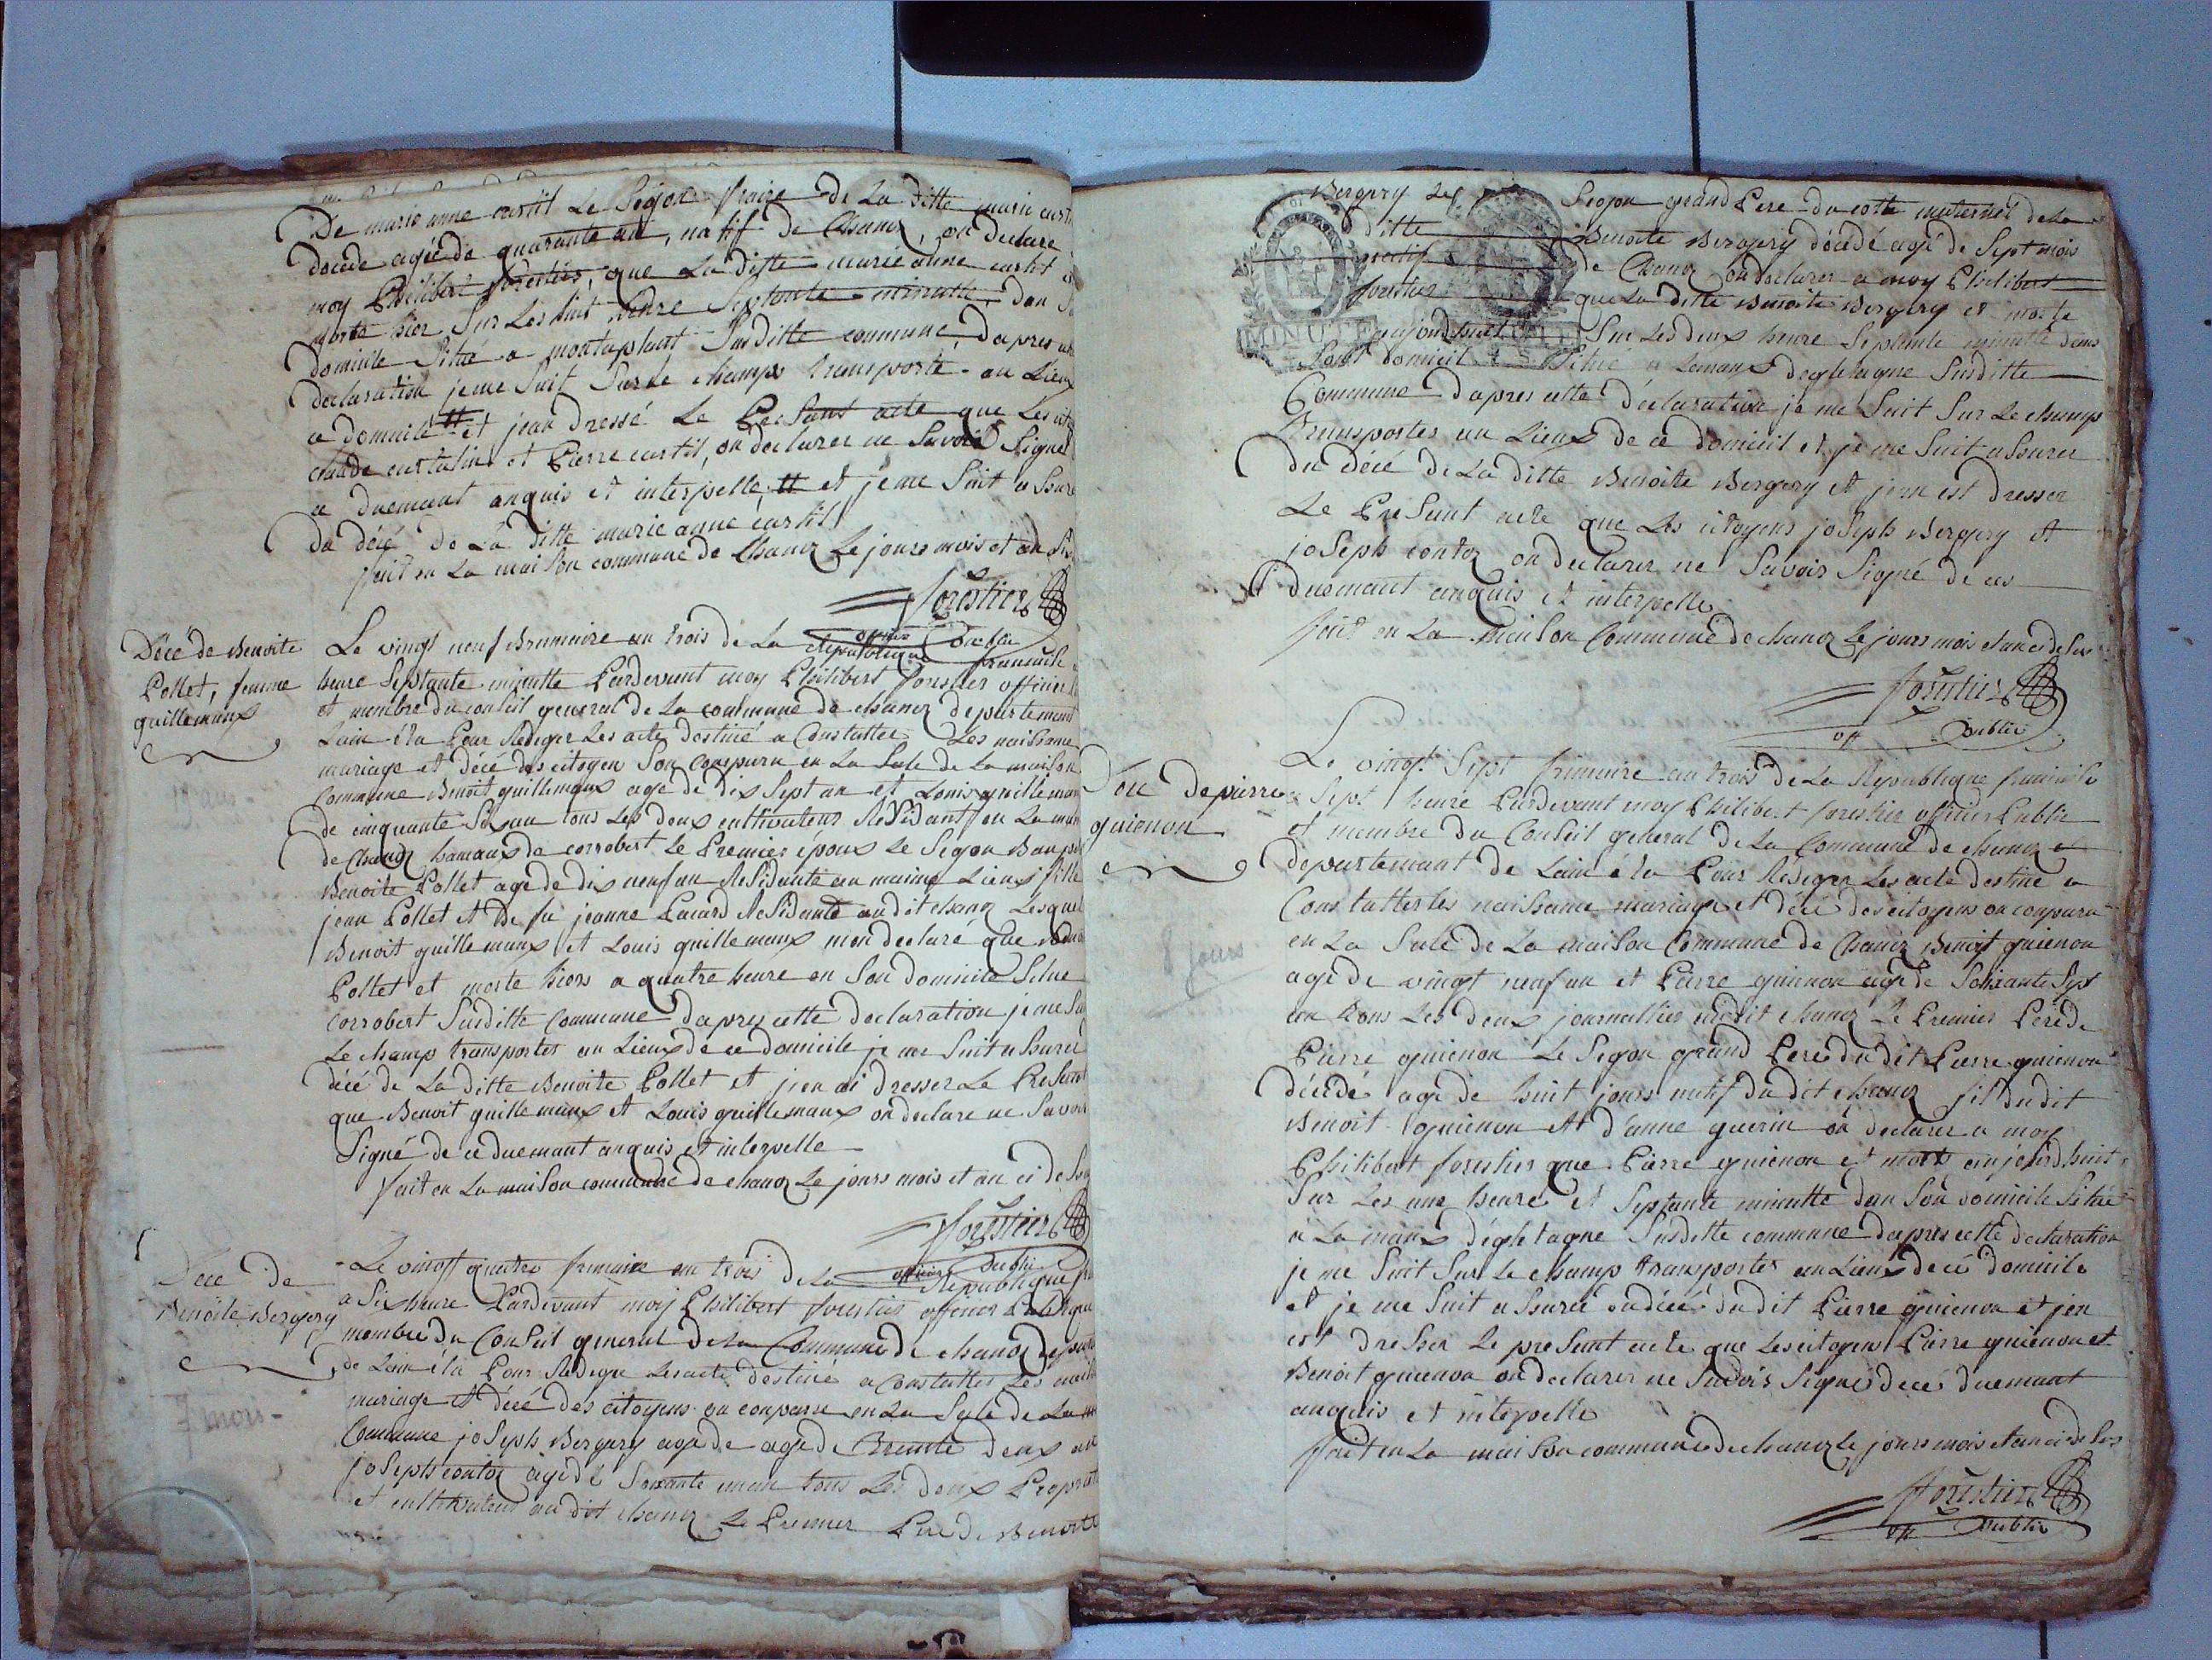 De marie anne curtil Le Segon fraire de La ditte marie curti
docede agée de quarante an, natif de Chanoz, on declare
moy Philibert forestier, que La ditte marie anne curtil
morte hier Sur Les huit heure Septante minutte dan
domicile Situé a montaplant Susditte commune, dapres
declaration je me Suit Sur le champ transporté au Lieux
ce domicile et jean dressé Le Presant acte que Les
claude et Pierre curtil, on declarer ne Savoir Signer
ce duemant anquis et interpelle et je me Suit assure
du décé de La ditte marie anne curtil
fait en La maison commune de Chanoz Le jours mois et an
forestier
officier Public
Décé de Benoite
Pollet, femme
guillemaux
Le vingt neuf Brumaire an trois de La Republique francaise
heure Septante minutte Pardevant moy Philibert forestier officier
et membre du conseil general de La commune de chanoz departement
Lain élu Pour Rediger Les acte destiné a Constatter Les naissance
mariage et décé des citoyen Son Comparu en La Sale de La maison
Commune Benoit guillemaux age de dix Sept an et Louis guillemaux
de cinquante an tous Les deux cultivateurs Residant en La
de Chanoz hamaux de corrobert Le Premier époux Le Segon
Benoite Pollet age de dix neuf an Residante au maime Lieux fille
jean Pollet et De fu jeanne Pacard Residante audit chanoz Lesquel
Benoit guillemaux et Louis guillemaux mon declaré que
Pollet et morte hiers a quatre heure en Son domicile Situe
corrobert Susditte Commune dapres cette declaration je me
Le champ transporter au Lieux de ce domicile je me Suit assurer
décé de La ditte Benoite Pollet et jen ai dresser Le Presant
que Benoit guillemaux et Louis guillemaux on declare ne Savoir
Signé de ce duemant anquis et interpelle
fait en La maison commune de chanoz Le jours mois et an ci de
forestier
officier Public
Décé de
Benoite Bergery
7 mois
Le vingt quatre frimaire an trois de La Republique
a Six heure Pardevant moy Philibert forestier officier
membre du Conseil general de La Commune de chanoz
de Lain élu Pour Rediger Les acte destiné a Constatter Les
mariage et décé des citoyens on comparu en La Sale de La
Commune joseph Bergery age de age de trente deux an
joseph contoz agé de Soixante un an tous Les deux Proprietaire
et cultivateur audit chanoz Le Premier Pere de Benoite
Bergery Le Segon grand Pere du cotte maternel de La
ditte Benoite Bergery décédé agé de Sept mois
natif de Chanoz on declarer a moy Philibert
forestier que La ditte Benoite Bergery et morte
aujourdhuit Sur Les deux heure Septante minutte dans
Sont domicil Situé a Lamaux Susditte
MINUTE
Commune dapres cette déclaration je me Suit Sur Le champ
Transporter au Lieux de ce domicil et je me Suit assurer
du décé de La ditte Benoite Bergery et jean est dresser
Le Presant acte que Les citoyens joseph Bergery et
joseph contoz on declarer ne Savoir Signé de ces
duemant anquis et interpelle
fait en La maison Commune de chanoz Le jours mois et an ci de Sus
forestier
off Public
de pierre
guienon
8 jours
Le vingt Sept frimaire an trois de La Republique francaise
a Sept heure Pardevant moy Philibert forestier officier Public
et membre du Conseil general de La Commune de chanoz
departemant de Lain élu Pour Rédiger Les acte destiné a
Constatter les naissance mariage et décé des citoyens on comparu
en La Sale de La maison Commune de Chanoz Benoit guienon
age de vingt neuf an et Pierre guienon age de Soixante Sept
an tous Les deux journallier audit chanoz Le Premier Pere de
Pierre guienon Le Segon grand Pere du dit Pierre guienon
décédé age de huit jours natif du dit chanoz fil du dit
Benoit guienon et d'anne guerin on declarer a moy
Philibert forestier que Pierre guienon et mort aujourdhuit
Sur Les une heure et Septante minutte dan Son domicile Situé
a La maux Susditte commune dapres cette declaration
je me Suit Sur Le champ transporter au Lieux de ce domicile
et je me Suit assurer du décé du dit Pierre guienon et jen
est dresser Le presant acte que Les citoyen Pierre guienon et
Benoit guienon on declarer ne Savoir Signé de ce duemant
anquis et interpelle
fait en La maison commune de chanoz Le jours mois et an ci de Sus
forestier
off Public